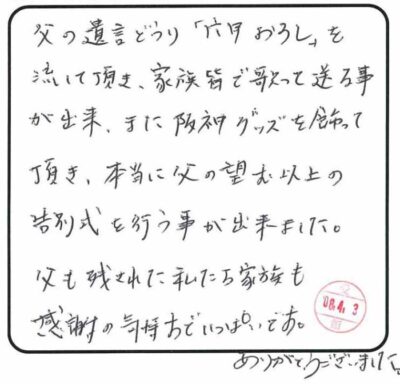 父の遺言どうり「六甲おろし」を
流して頂き、家族皆で歌って送る事
が出来、また阪神グッズを飾って
頂き、本当に父の望む以上の
告別式を行う事が出来ました。
父も残された私たち家族も
感謝の気持ちでいっぱいです。
08.4.3
ありがとうございました。